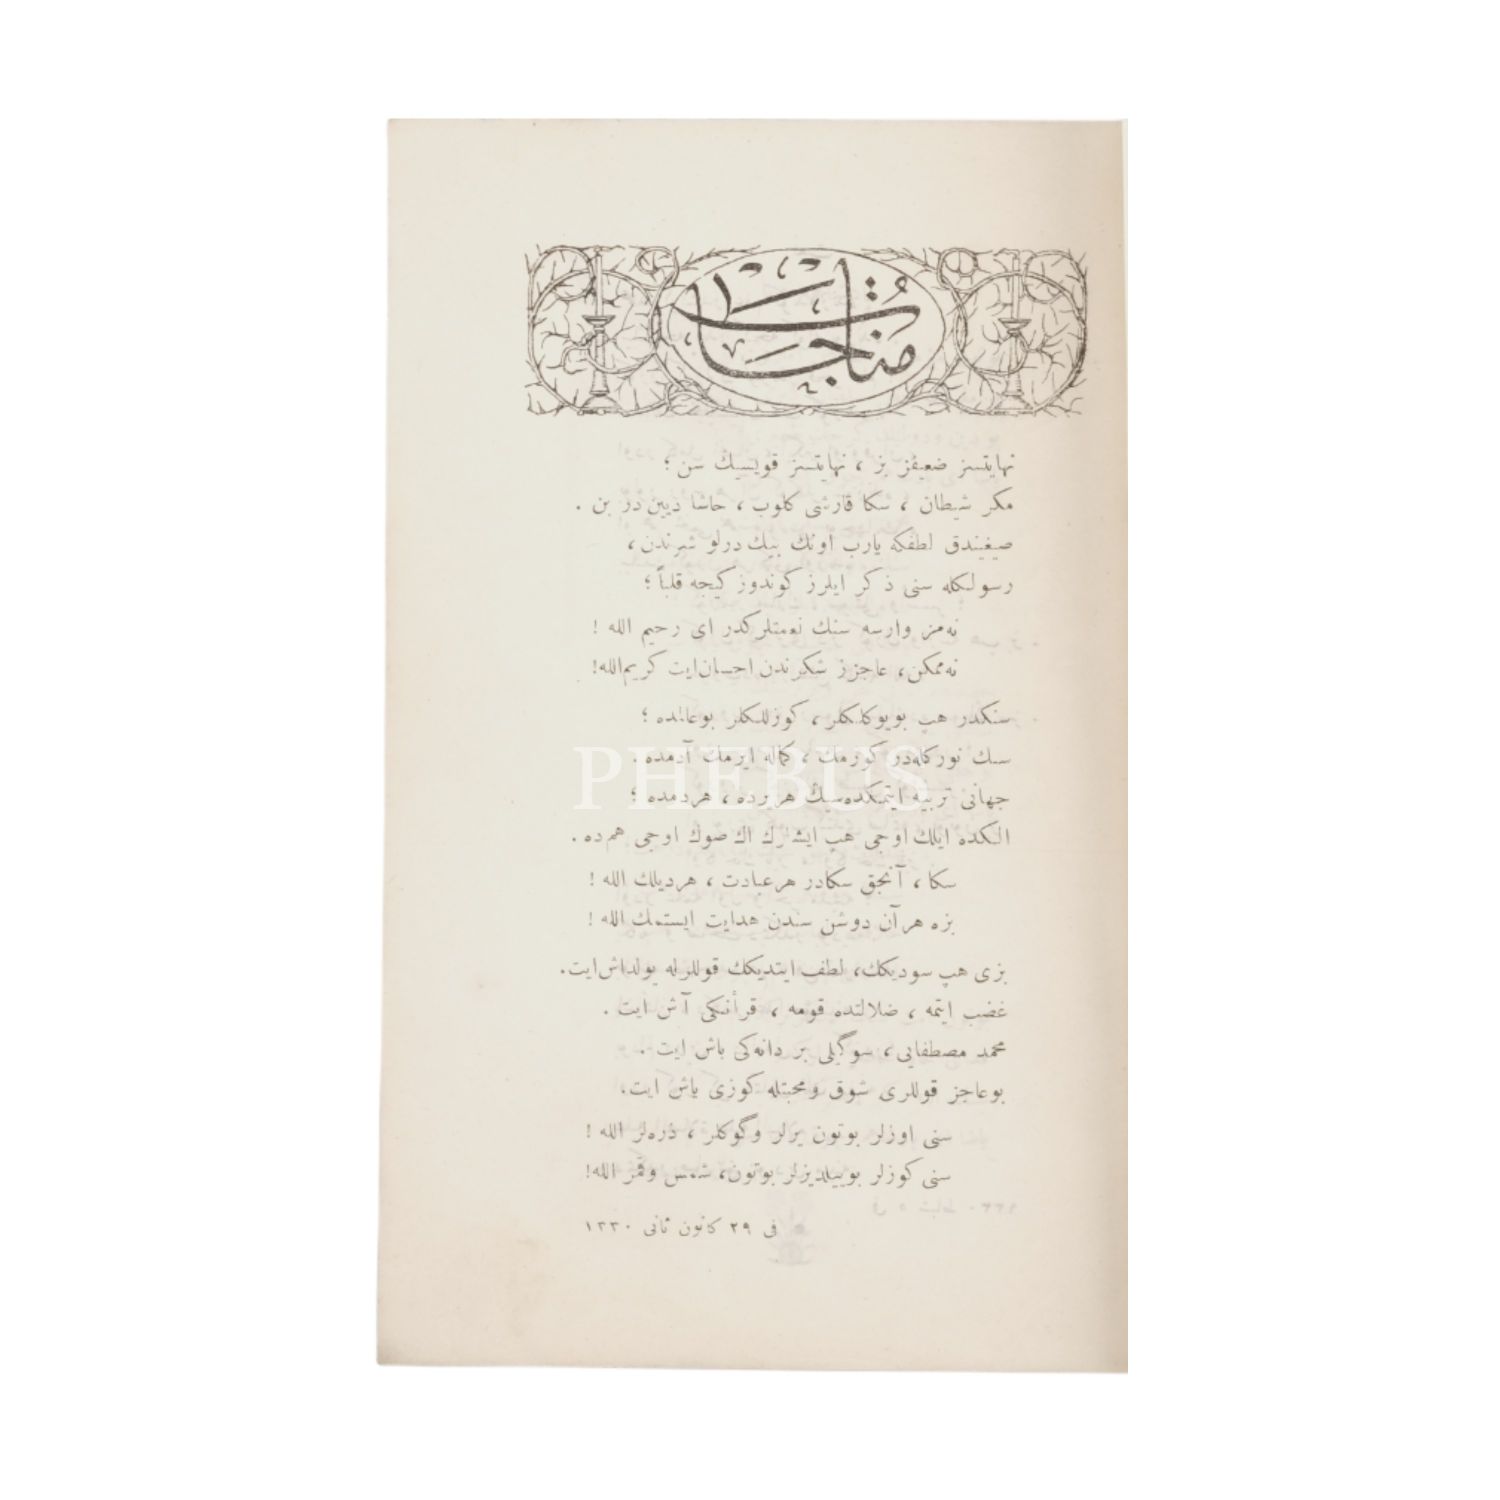 مناجات
نهایتسز ضعیفز بز ، نهایتسز قویسیك سن ؛
مكر شیطان ، سكا قارشی كلوب ، حاشا دیین در بن .
صیغیندق لطفكه یارب اونك بیك درلو شرندن ،
رسولكله سنی ذكر ایلرز كوندوز كیجه قلباً ؛
نه‌مز وارسه سنك نعمتلركدر ای رحیم الله !
نه‌ممكن، عاجزز شكرندن احسان‌ایت كریم‌الله!
سنكدر هپ بویوكلكلر ، كوزللكلر بوعالمده ؛
سنك نوركله‌در كورمك ، كماله ایرمك آدمده .
جهانی تربیه ایتمكده‌سیك هریرده ، هردمده ؛
الكده ایلك اوجی هپ ایشلرك اك صوك اوجی هم‌ده .
سكا ، آنجق سكادر هرعبادت ، هردیلك الله !
بزه هرآن دوشن سندن هدایت ایستمك الله !
بزی هپ سودیكك، لطف ایتدیكك قوللرله یولداش‌ایت.
غضب ایتمه ، ضلالتده قومه ، قرأنكی آش ایت .
محمد مصطفایی ، سوكیلی بر دانه‌كی باش ایت .
بوعاجز قوللری شوق ومحبتله كوزی یاش ایت.
سنی اوزلر بوتون یرلر وگوكلر ، ذره‌لر الله !
سنی كوزلر بوییلدیزلر بوتون، شمس وقمر الله!
فی ٢٩ كانون ثانی ١٣٣٠
PHEBUS